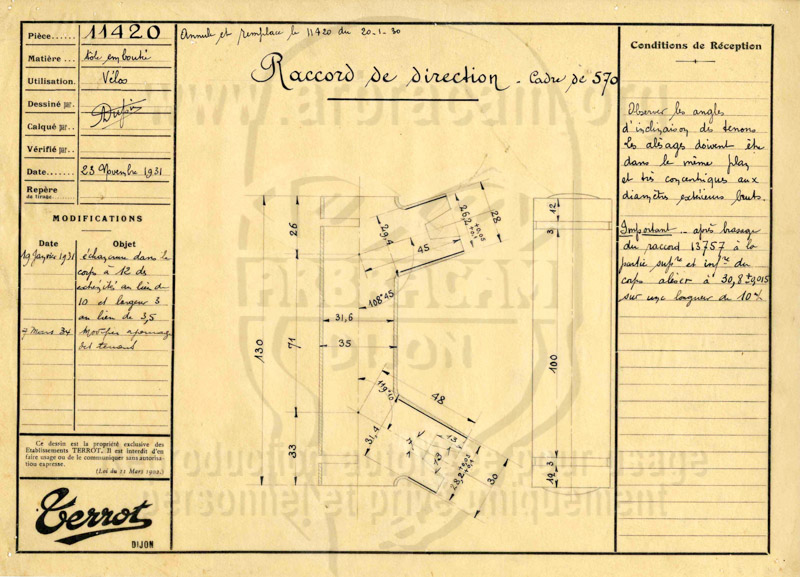 Pièce...... 11420
Matière... tôle emboutie
Utilisation. Vélos
Dessiné par.
Calqué par..
Vérifié par..
Date........ 23 Novembre 1931
Repère
du tirage
MODIFICATIONS
Date Objet
19 Janvier 1931 échancrure dans le
corps à 12 des
extrémités au lieu de
10 et largeur 3
au lieu de 3,5
7 Mars 34
Ce dessin est la propriété exclusive des
Etablissements TERROT. Il est interdit d'en
faire usage ou de le communiquer sans autorisa-
tion expresse.
(Loi du 11 Mars 1902.)
Terrot
DIJON
Annule et remplace le 11420 du 20-1-30
Raccord de direction - Cadre de 570
130
26
71
33
31,6
35
29,4
45
26,2
28
108°45
119°10
31,4
48
13
28,2
30
12
3
100
12
3
Conditions de Réception
Observer les angles
d'inclinaison des tenons
Les alésages doivent être
dans le même plan
et très concentriques aux
diamètres extérieurs bruts.
Important - après brasage
du raccord 13757 à la
partie supre et infre du
corps aléser à 30,8 ± 0,015
sur une longueur de 10
www.arbracam.org
AMBRACAM
DIJON
Reproduction autorisée pour usage
personnel et privé uniquement